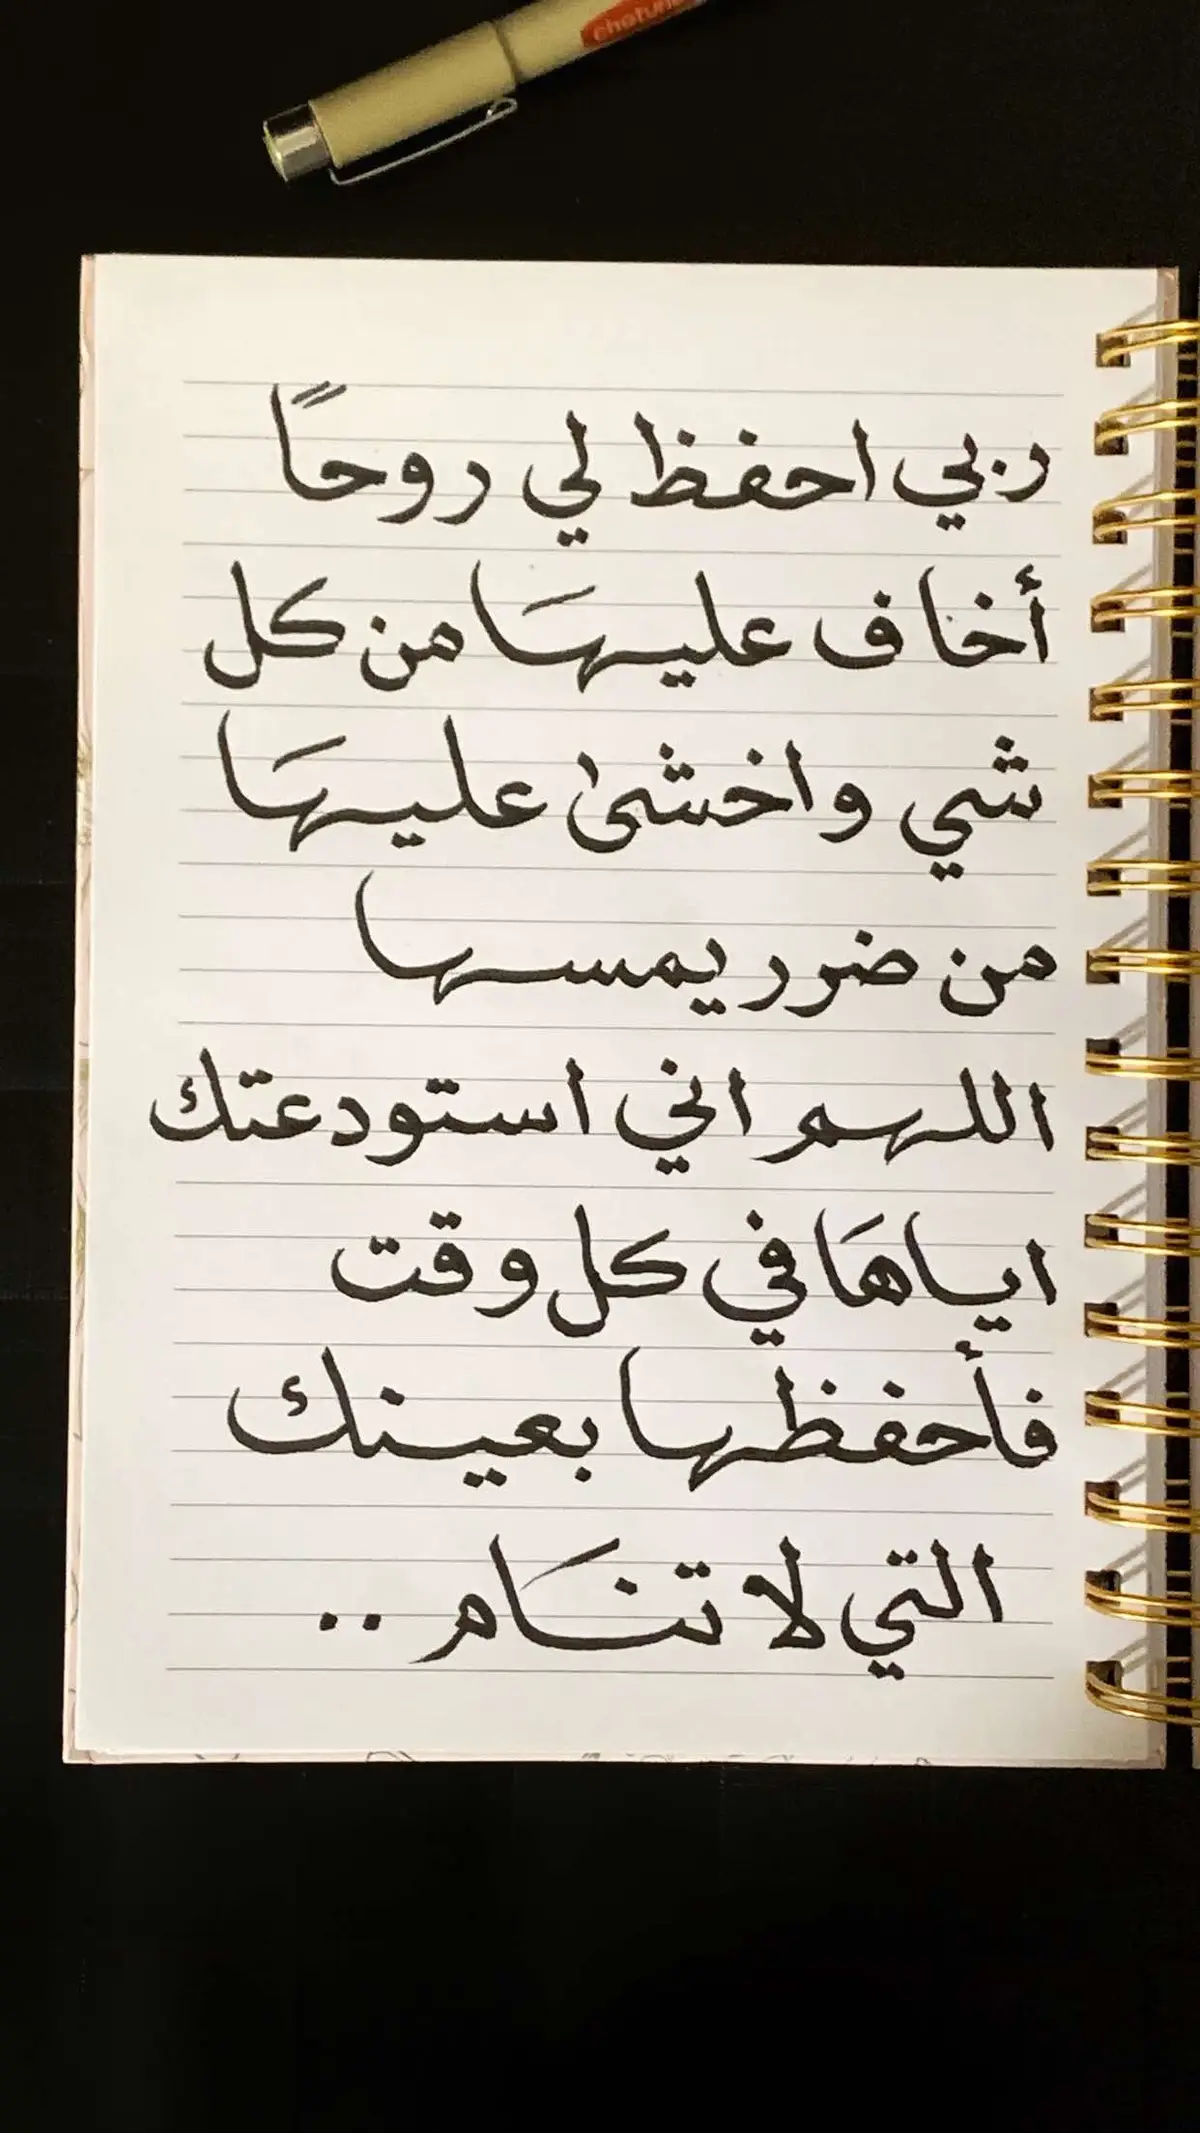 ربي احفظ لي روحاً
أخاف عليهَا من كل
شي واخشىٰ عليهَا
من ضرر يمسها
اللهم اني استودعتك
اياهَا في كل وقت
فأحفظها بعينك
التي لا تنَام ..